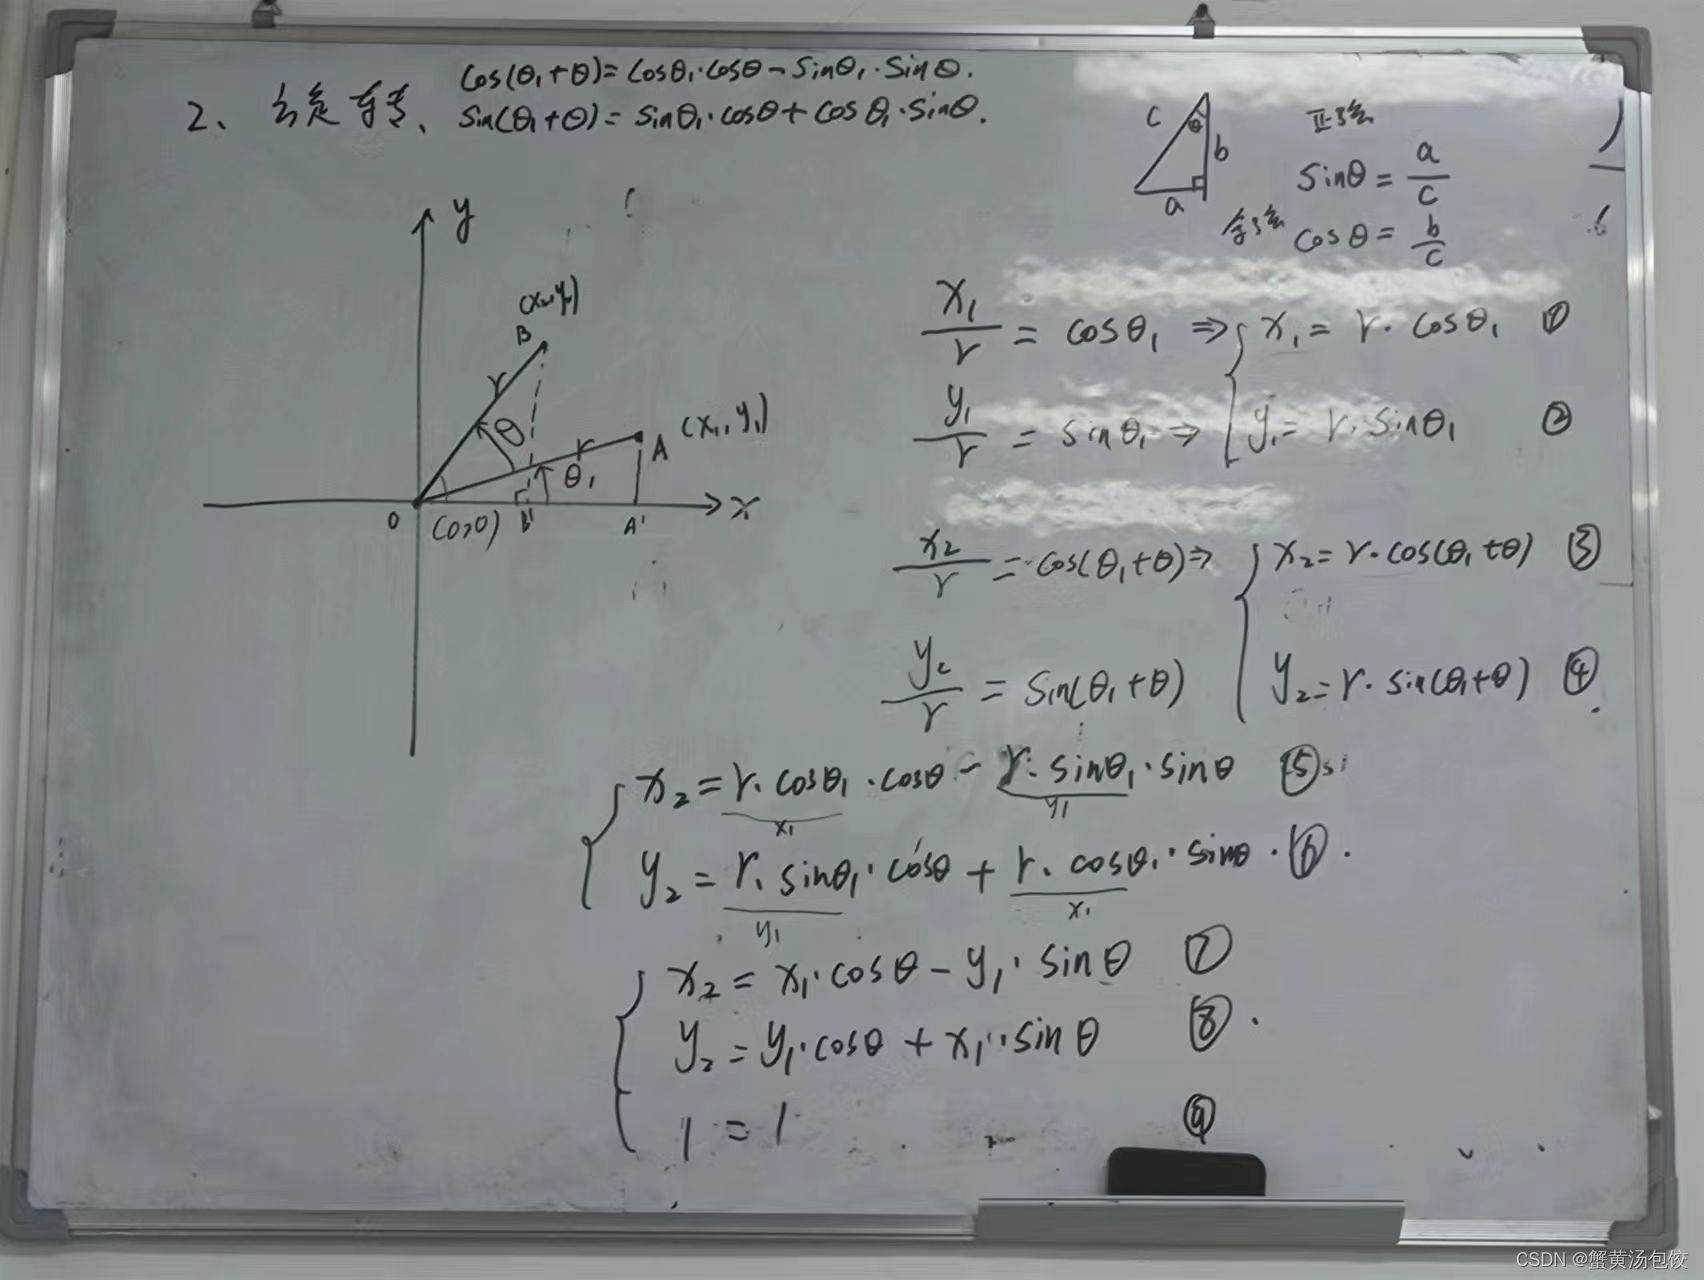 cos(θ₁+θ)=cosθ₁·cosθ-sinθ₁·sinθ.
2、旋转、
sin(θ₁+θ)=sinθ₁·cosθ+cosθ₁·sinθ.
c
θ
b
a
正弦
sinθ=a/c
余弦 cosθ=b/c
y
(x₂,y₂)
B
r
θ
r
A (x₁,y₁)
θ₁
O (0,0) B' A' x
x₁/r=cosθ₁ ⇒ { x₁=r·cosθ₁ ①
y₁/r=sinθ₁ ⇒ y₁=r·sinθ₁ ②
x₂/r=cos(θ₁+θ) ⇒ { x₂=r·cos(θ₁+θ) ③
y₂/r=sin(θ₁+θ) y₂=r·sin(θ₁+θ) ④
{ x₂=r·cosθ₁·cosθ-r·sinθ₁·sinθ ⑤ si
x₁ y₁
y₂=r·sinθ₁·cosθ+r·cosθ₁·sinθ·⑥.
y₁ x₁
{ x₂=x₁·cosθ-y₁·sinθ ⑦
y₂=y₁·cosθ+x₁·sinθ ⑧.
1=1 ⑨
CSDN @蟹黄汤包饺